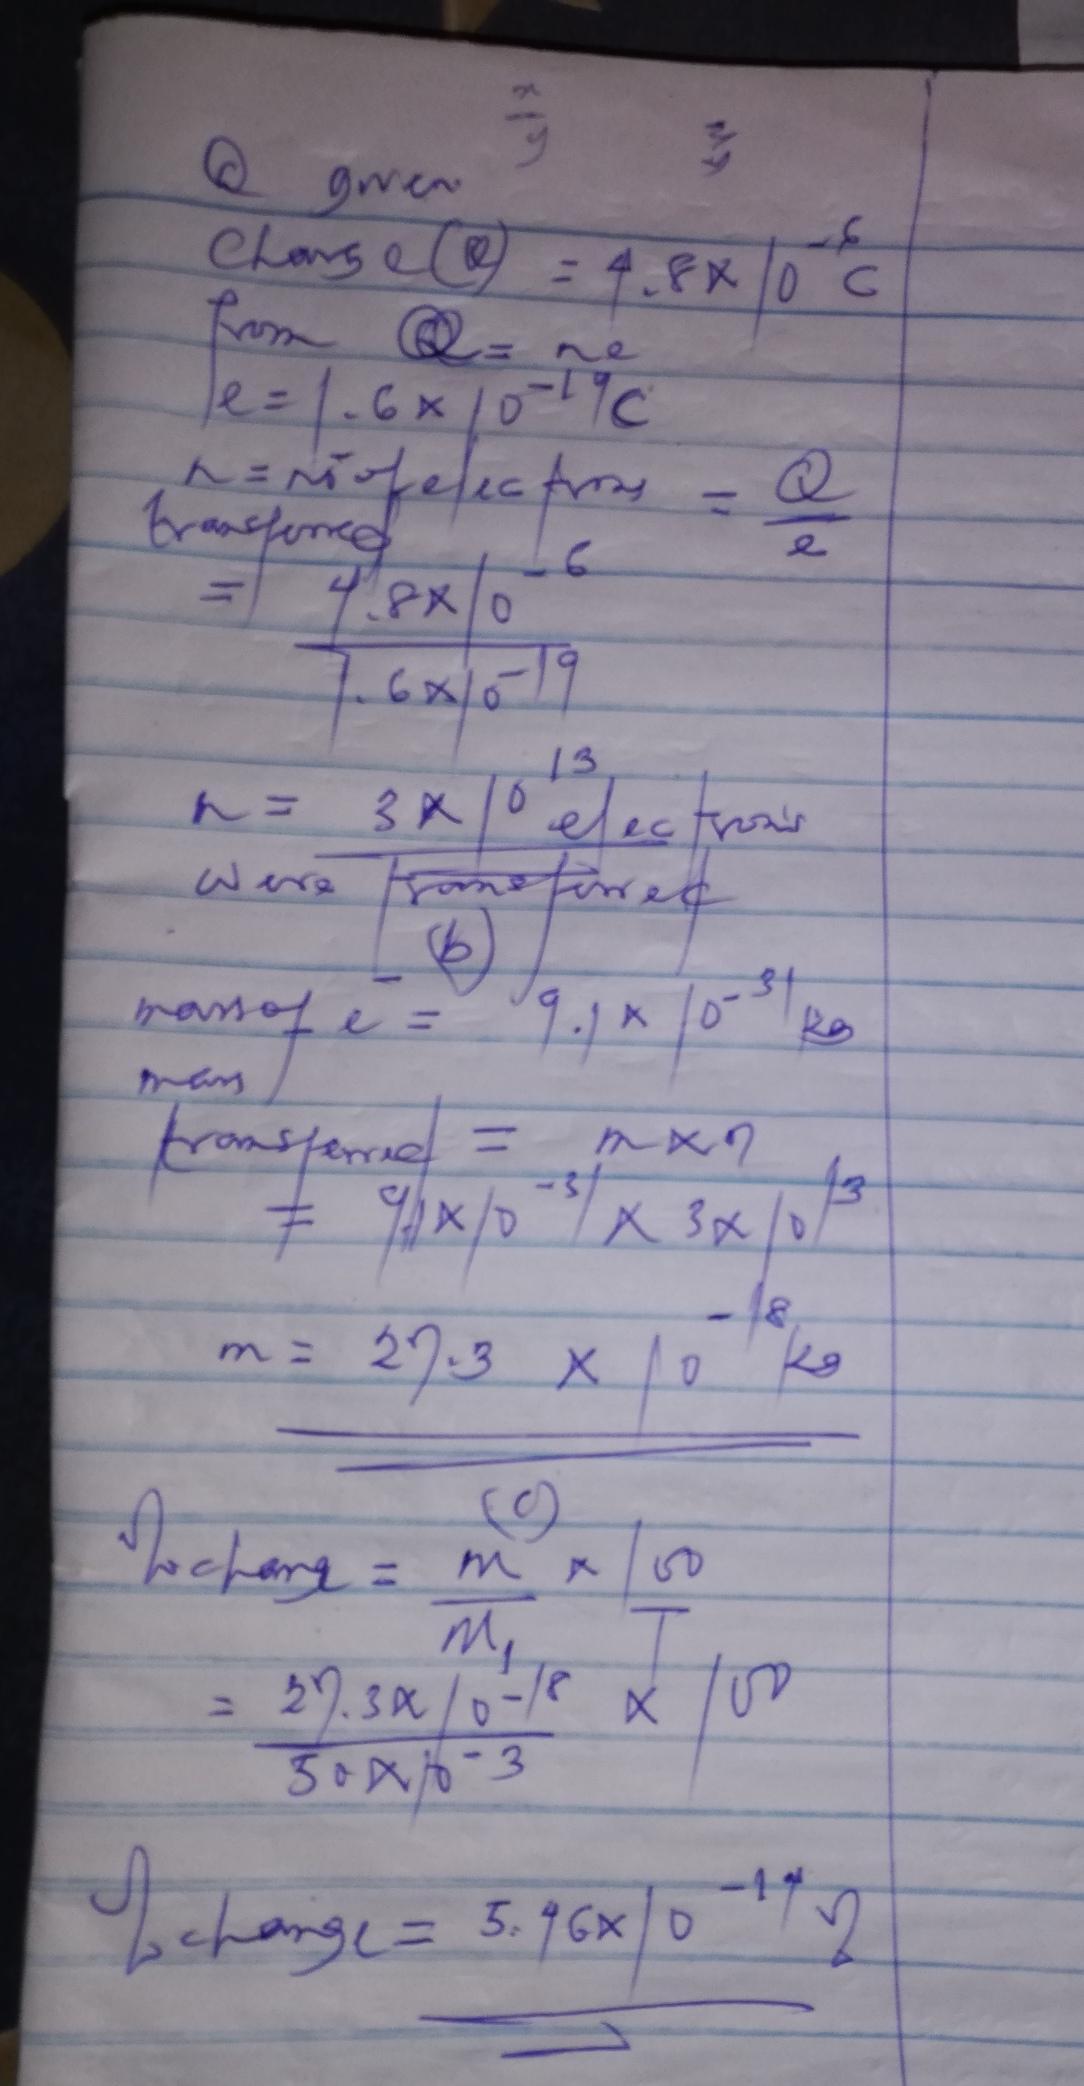 x/y x/y
Q given
Charge (Q) = 4.8 x 10^-6 C
from Q = ne
e = 1.6 x 10^-19 C
n = no of electrons = Q/e
transferred
= 4.8 x 10^-6
1.6 x 10^-19
n = 3 x 10^13 electrons
were transferred
(b)
mass of e^- = 9.1 x 10^-31 kg
mass
transferred = m x n
= 9.1 x 10^-31 x 3 x 10^13
m = 27.3 x 10^-18 kg
(c)
% change = m/M1 x 100/1
= 27.3 x 10^-18 x 100
50 x 10^-3
% change = 5.46 x 10^-14 %